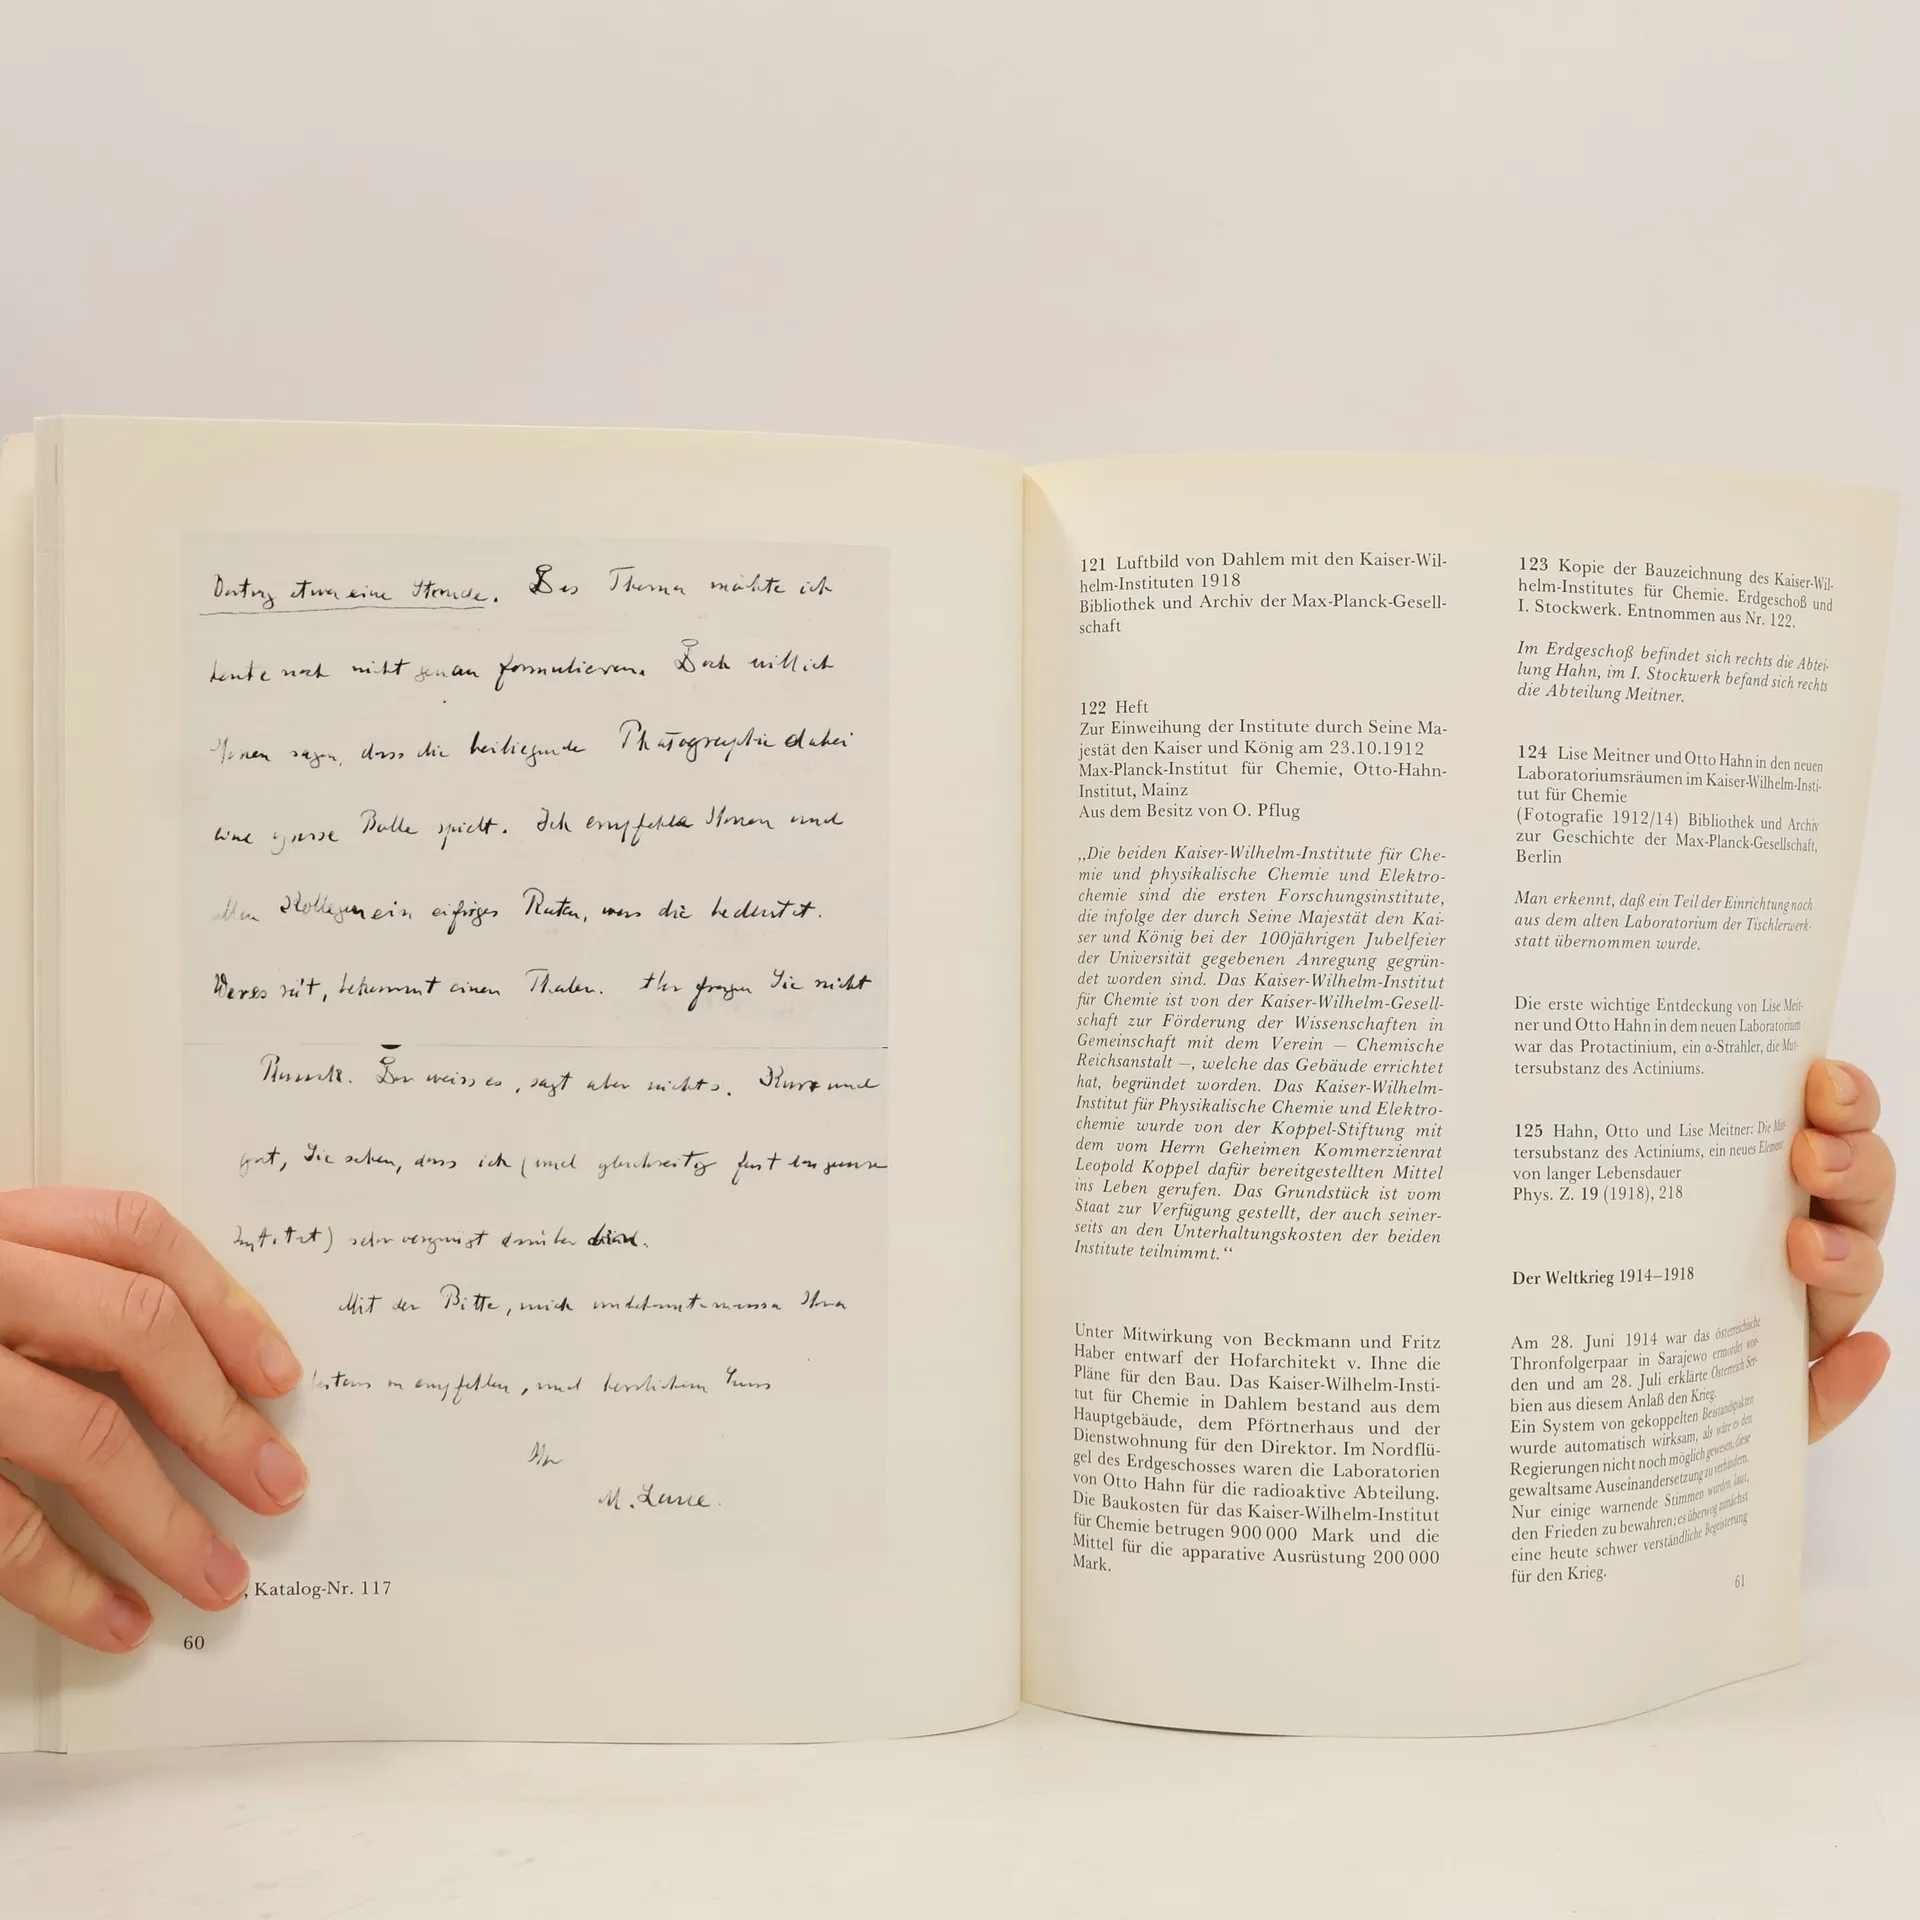 Vortrag etwa eine Stunde. Das Thema möchte ich
heute noch nicht genau formulieren. Doch will ich
Ihnen sagen, dass die beiliegende Photographie dabei
eine grosse Rolle spielt. Ich empfehle Ihnen und
allen Kollegen ein eifriges Raten, was die bedeutet.
Wer es rät, bekommt einen Thaler. Aber fragen Sie nicht
Der weiss es, sagt aber nichts. Kurz und
gut, Sie sehen, dass ich (und gleichzeitig fast das ganze
Institut) sehr vergnügt darüber
Mit der Bitte, mich unbekannterweise Ihrer
bestens zu empfehlen, und herzlichem Gruss
Ihr
M. Laue.
, Katalog-Nr. 117
60
121 Luftbild von Dahlem mit den Kaiser-Wil-
helm-Instituten 1918
Bibliothek und Archiv der Max-Planck-Gesell-
schaft
122 Heft
Zur Einweihung der Institute durch Seine Ma-
jestät den Kaiser und König am 23.10.1912
Max-Planck-Institut für Chemie, Otto-Hahn-
Institut, Mainz
Aus dem Besitz von O. Pflug
„Die beiden Kaiser-Wilhelm-Institute für Che-
mie und physikalische Chemie und Elektro-
chemie sind die ersten Forschungsinstitute,
die infolge der durch Seine Majestät den Kai-
ser und König bei der 100jährigen Jubelfeier
der Universität gegebenen Anregung gegrün-
det worden sind. Das Kaiser-Wilhelm-Institut
für Chemie ist von der Kaiser-Wilhelm-Gesell-
schaft zur Förderung der Wissenschaften in
Gemeinschaft mit dem Verein – Chemische
Reichsanstalt –, welche das Gebäude errichtet
hat, begründet worden. Das Kaiser-Wilhelm-
Institut für Physikalische Chemie und Elektro-
chemie wurde von der Koppel-Stiftung mit
dem vom Herrn Geheimen Kommerzienrat
Leopold Koppel dafür bereitgestellten Mittel
ins Leben gerufen. Das Grundstück ist vom
Staat zur Verfügung gestellt, der auch seiner-
seits an den Unterhaltungskosten der beiden
Institute teilnimmt.“
Unter Mitwirkung von Beckmann und Fritz
Haber entwarf der Hofarchitekt v. Ihne die
Pläne für den Bau. Das Kaiser-Wilhelm-Insti-
tut für Chemie in Dahlem bestand aus dem
Hauptgebäude, dem Pförtnerhaus und der
Dienstwohnung für den Direktor. Im Nordflü-
gel des Erdgeschosses waren die Laboratorien
von Otto Hahn für die radioaktive Abteilung.
Die Baukosten für das Kaiser-Wilhelm-Institut
für Chemie betrugen 900 000 Mark und die
Mittel für die apparative Ausrüstung 200 000
Mark.
123 Kopie der Bauzeichnung des Kaiser-Wil-
helm-Institutes für Chemie. Erdgeschoß und
I. Stockwerk. Entnommen aus Nr. 122.
Im Erdgeschoß befindet sich rechts die Abtei-
lung Hahn, im I. Stockwerk befand sich rechts
die Abteilung Meitner.
124 Lise Meitner und Otto Hahn in den neuen
Laboratoriumsräumen im Kaiser-Wilhelm-Insti-
tut für Chemie
(Fotografie 1912/14) Bibliothek und Archiv
zur Geschichte der Max-Planck-Gesellschaft,
Berlin
Man erkennt, daß ein Teil der Einrichtung noch
aus dem alten Laboratorium der Tischlerwerk-
statt übernommen wurde.
Die erste wichtige Entdeckung von Lise Meit-
ner und Otto Hahn in dem neuen Laboratorium
war das Protactinium, ein α-Strahler, die Mut-
tersubstanz des Actiniums.
125 Hahn, Otto und Lise Meitner: Die Mut-
tersubstanz des Actiniums, ein neues Element
von langer Lebensdauer
Phys. Z. 19 (1918), 218
Der Weltkrieg 1914–1918
Am 28. Juni 1914 war das österreichische
Thronfolgerpaar in Sarajewo ermordet wor-
den und am 28. Juli erklärte Österreich Ser-
bien aus diesem Anlaß den Krieg.
Ein System von gekoppelten Beistandspakten
wurde automatisch wirksam, als wäre es den
Regierungen nicht noch möglich gewesen, diese
gewaltsame Auseinandersetzung zu verhindern.
Nur einige warnende Stimmen wurden laut,
den Frieden zu bewahren; es überwog zunächst
eine heute schwer verständliche Begeisterung
für den Krieg.
61